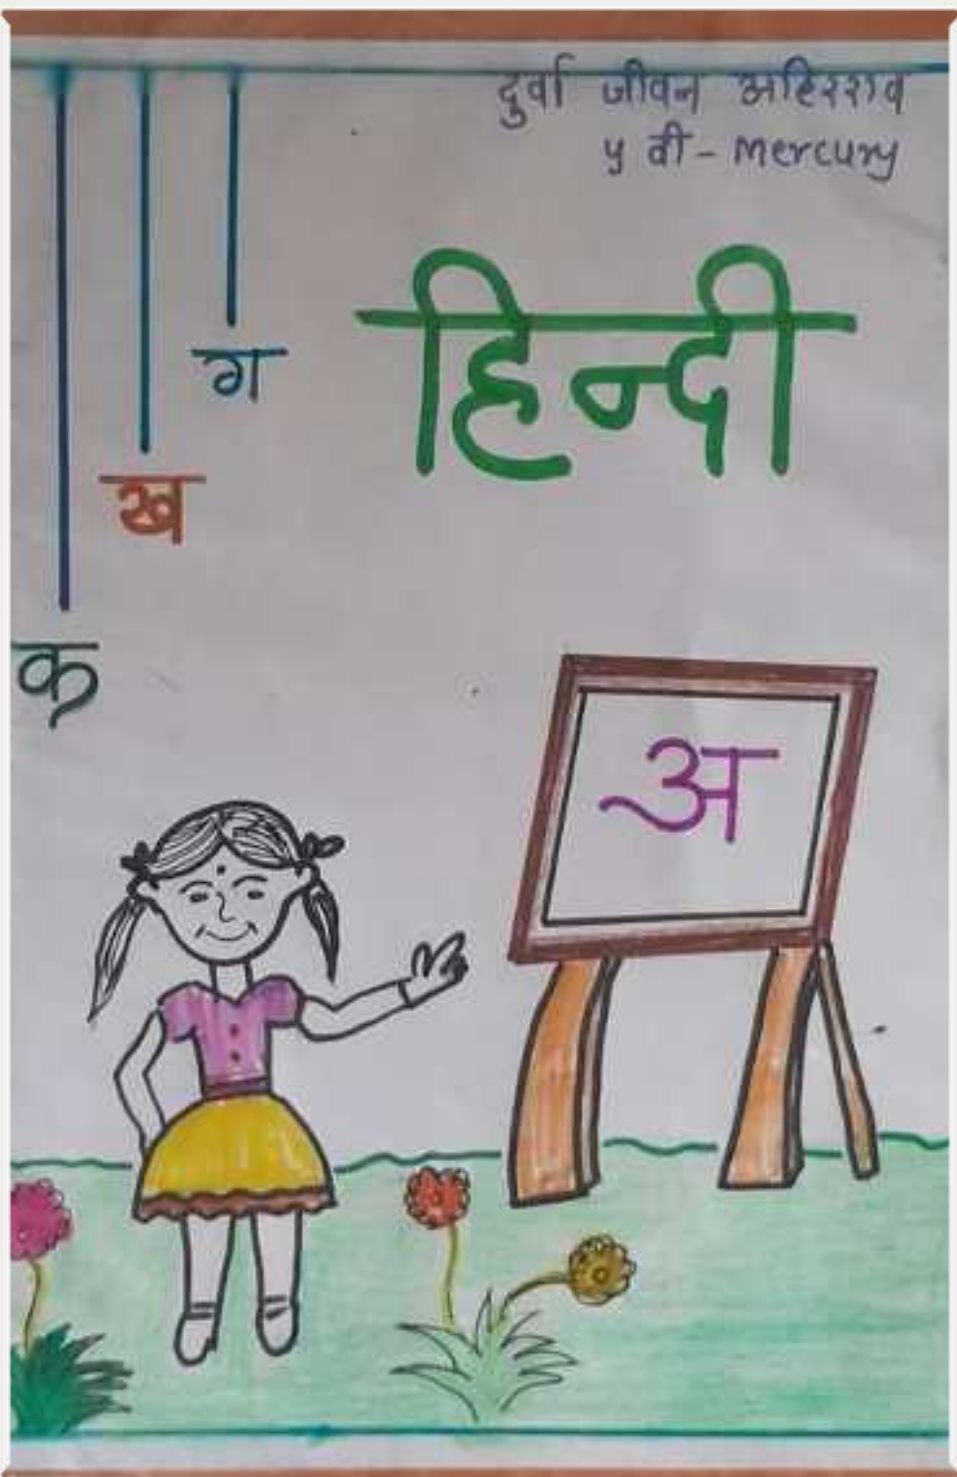 दुर्वा जीवन अहिरराव
५ वी - Mercury
हिन्दी
ग
ख
क
अ